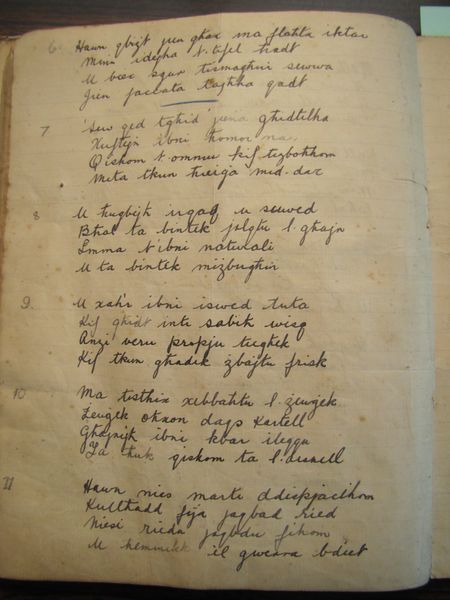 6. Hawn qbizt jien ghax ma flahta iktar
Minn idejha t.tifel hadt
U bccc sgur tismaghni sewwa
Jien faccata taghha qadt
7 Sew qed tghid jiena ghidtilha
Xuftejn ibni homor na
Qishom t'ommu kif tizbokhom
Meta tkun hierga mid-dar
8 U hugbejh irqaq u suwed
Bhal ta bintek jolqtu l.ghajn
Imma t'ibni naturali
U ta bintek mizbughin
9. U xahr ibni iswed tuta
Kif ghidt inti sabih wisq
Anzi veru propju tieghek
Kif tkun ghadek zbajtu frisk
10 Ma tistax xebbahtu l.zewgek
Zewgek ohxon daqs kartell
Ghajnejh ibni kbar ileqqu
Ta huk qishom ta l.
11 Hawn nies marti ddispjacihom
Kulhadd fija jaqbad ried
Niesi riedu jaqbdu fihom
U hemmhekk il gwerra bdiet